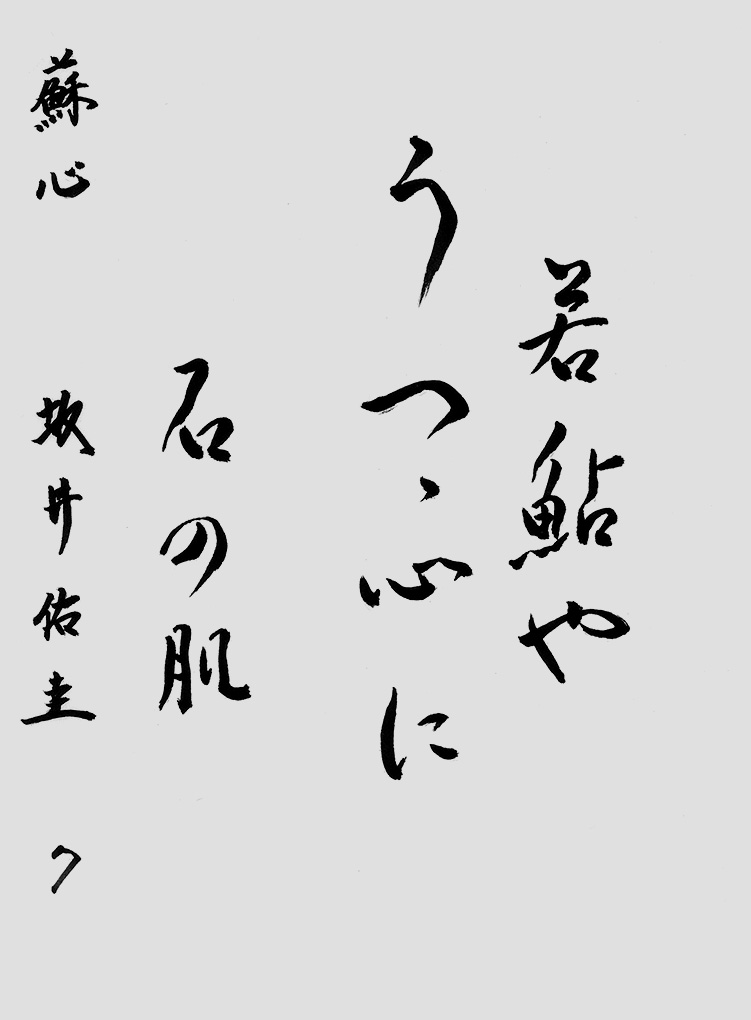 若鮎や
うつゝ心に
石の肌
蘇心 坂井佑圭